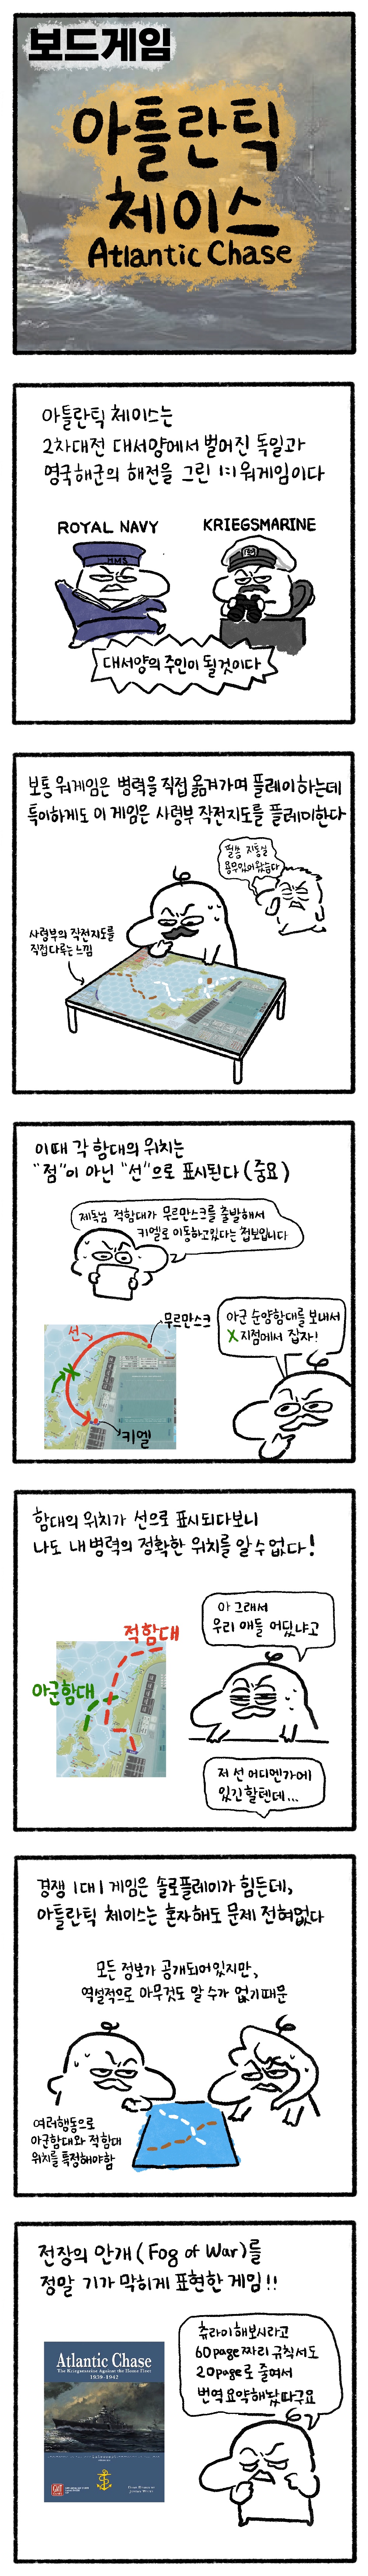 보드게임
아틀란틱
체이스
Atlantic Chase
아틀란틱 체이스는
2차대전 대서양에서 벌어진 독일과
영국해군의 해전을 그린 1:1 워게임이다
ROYAL NAVY
KRIEGSMARINE
HMS
대서양의 주인이 될것이다
보통 워게임은 병력을 직접 옮겨가며 플레이하는데
특이하게도 이 게임은 사령부 작전지도를 플레이한다
필승 지통실
용무있어왔습니다
사령부의 작전지도를
직접다루는 느낌
이때 각 함대의 위치는
"점"이 아닌 "선"으로 표시된다 (중요)
제독님 적함대가 무르만스크를 출발해서
키엘로 이동하고있다는 첩보입니다
선
무르만스크
키엘
아군 순양함대를 보내서
X 지점에서 잡자!
함대의 위치가 선으로 표시되다보니
나도 내 병력의 정확한 위치를 알 수 없다!
적함대
아군함대
아 그래서
우리 애들 어딨냐고
저 선 어디엔가에
있긴할텐데...
경쟁 1대1 게임은 솔로플레이가 힘든데,
아틀란틱 체이스는 혼자해도 문제 전혀없다
모든 정보가 공개되어있지만,
역설적으로 아무것도 알 수가 없기때문
여러행동으로
아군함대와 적함대
위치를 특정해야함
전장의 안개 (Fog of War)를
정말 기가 막히게 표현한 게임!!
츄라이해보시라고
60page 짜리 규칙서도
20page로 줄여서
번역요약해놨다구요
Atlantic Chase
The Kriegsmarine Against the Home Fleet
1939-1942
GMT